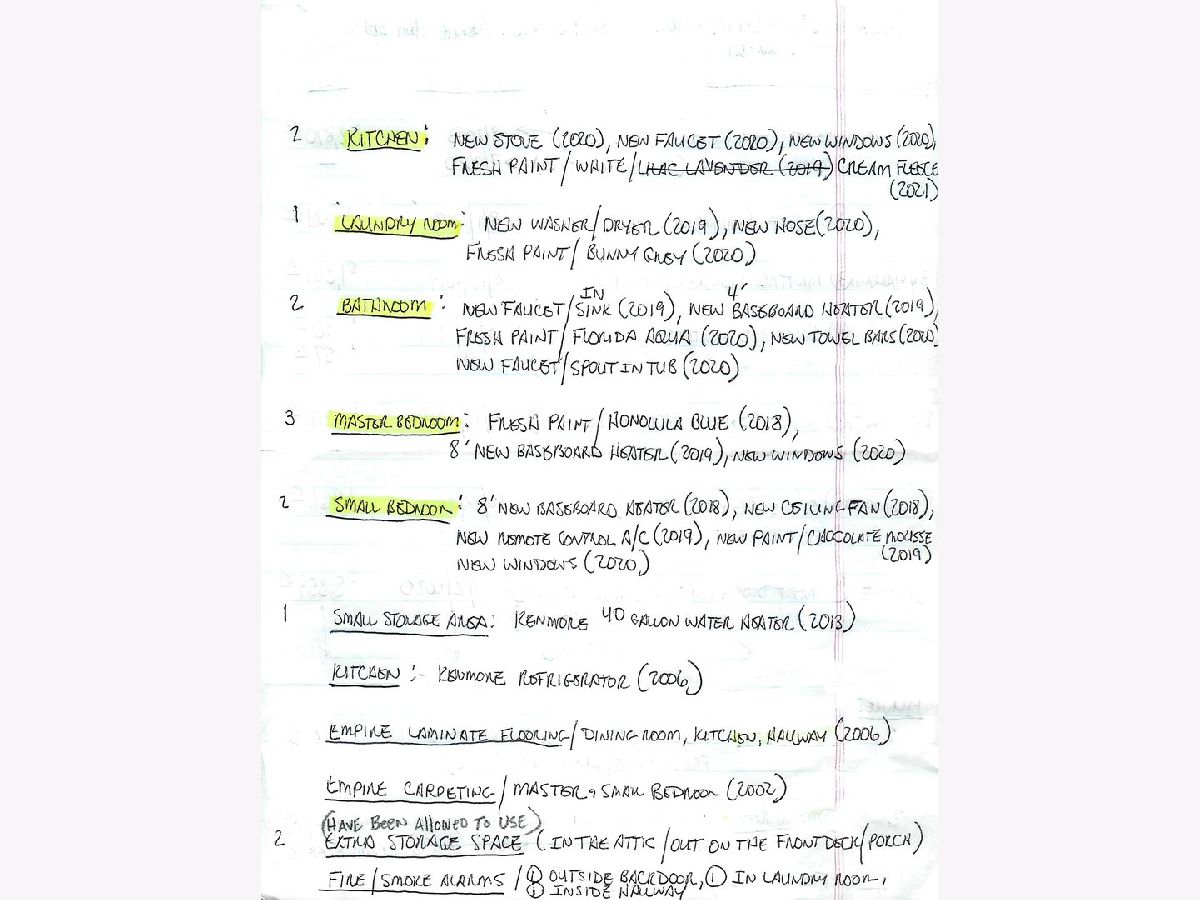 2 KITCHEN: NEW STOVE (2020), NEW FAUCET (2020), NEW WINDOWS (2020),
FRESH PAINT/WHITE/LILAC LAVENDER (2019) CREAM FLEECE
(2021)
1 LAUNDRY ROOM: NEW WASHER/DRYER (2019), NEW HOSE (2020),
FRESH PAINT/BUNNY GREY (2020)
IN 4'
2 BATHROOM: NEW FAUCET/SINK (2019), NEW BASEBOARD HEATER (2019),
FRESH PAINT/FLORIDA AQUA (2020), NEW TOWEL BARS (2020)
NEW FAUCET/SPOUT IN TUB (2020)
3 MASTER BEDROOM: FRESH PAINT/HONOLULU BLUE (2018),
8' NEW BASEBOARD HEATER (2019), NEW WINDOWS (2020)
2 SMALL BEDROOM: 8' NEW BASEBOARD HEATER (2018), NEW CEILING FAN (2018),
NEW REMOTE CONTROL A/C (2019), NEW PAINT/CHOCOLATE MOUSSE
(2019)
NEW WINDOWS (2020)
1 SMALL STORAGE AREA: KENMORE 40 GALLON WATER HEATER (2013)
KITCHEN: KENMORE REFRIGERATOR (2006)
EMPIRE LAMINATE FLOORING/DINING ROOM, KITCHEN, HALLWAY (2006)
EMPIRE CARPETING/MASTER + SMALL BEDROOM (2002)
(HAVE BEEN ALLOWED TO USE)
2 EXTRA STORAGE SPACE (IN THE ATTIC/OUT ON THE FRONT DECK/PORCH)
FIRE/SMOKE ALARMS/① OUTSIDE BACKDOOR, ① IN LAUNDRY ROOM,
① INSIDE HALLWAY